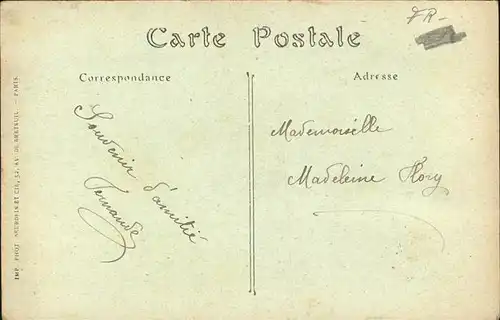 FR-
Carte Postale
Correspondance
Adresse
Souvenir d'amitié
Fernande
Mademoiselle
Madeleine Flory
IMP. PHOT. NEURDEIN ET CIE, 52, AV. DE BRETEUIL. — PARIS.